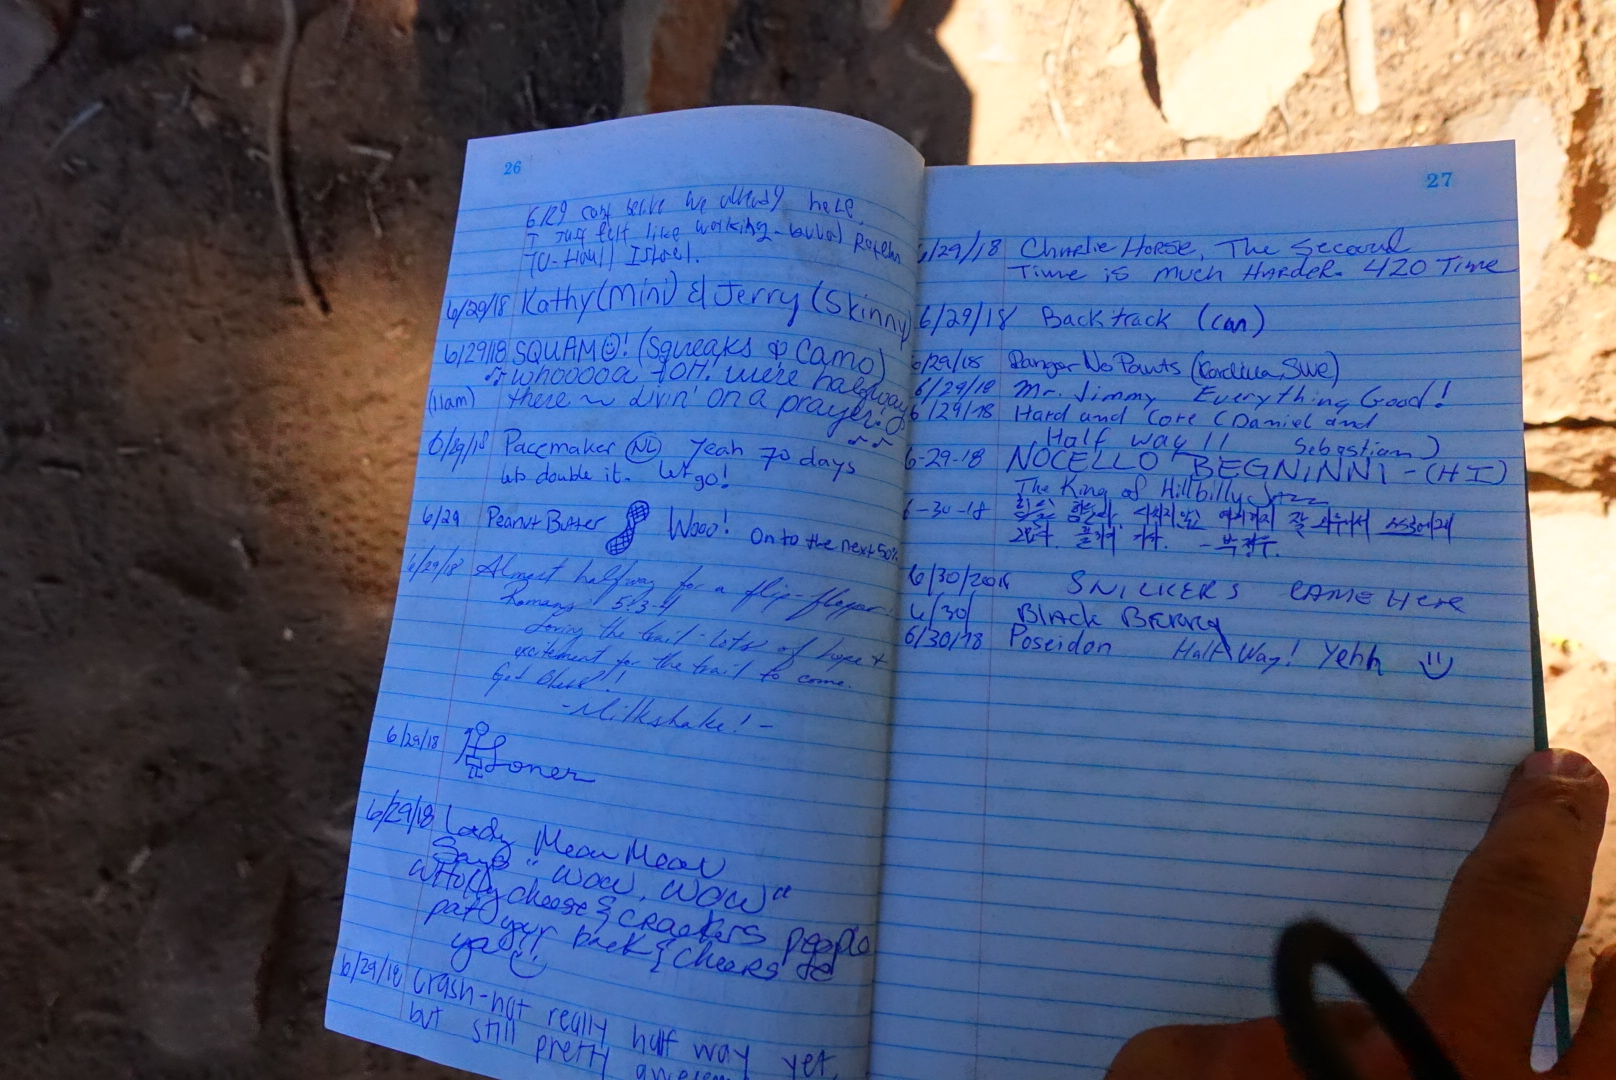 26
6/29 can't we already here,
I just felt like working
Israel.
6/29/18 Kathy (Mini) & Jerry (Skinny)
6/29/18 SQUAMO! (Squeaks & Camo)
whooooa OH! we're halfway
(11am) there ~ livin' on a prayer!
6/29/18 Pacemaker (NL) Yeah 70 days
lets double it. Let go!
6/29 Peanut Butter Wooo! On to the next 50%
6/29/18 Almost halfway for a flip-flopper.
Romans 5:3-4
Loving the trail - lots of hope +
excitement for the trail to come.
Get there!!
-Milkshake! -
6/29/18 Loner
6/29/18 Lady Meow Meow
Says "Wow, Wow"
Holy cheese & crackers people
pat your back & cheers to
ya!!
6/29/18 Crash-not really half way yet,
but still pretty awesome
27
6/29/18 Charlie Horse, The Second
Time is much Harder. 420 Time
6/29/18 Backtrack (can)
6/29/18 Danger No Pants (Swe)
6/29/18 Mr. Jimmy Everything Good!
6/29/18 Hard and Core (Daniel and
Half way!! Sebastian)
6-29-18 NOCELLO BEGNINNI - (HI)
The King of Hillbilly Jazz
6-30-18 여기까지 잘
가자.
6/30/2018 SNICKERS CAME HERE
6/30 Black
6/30/18 Poseidon Half Way! Yehh